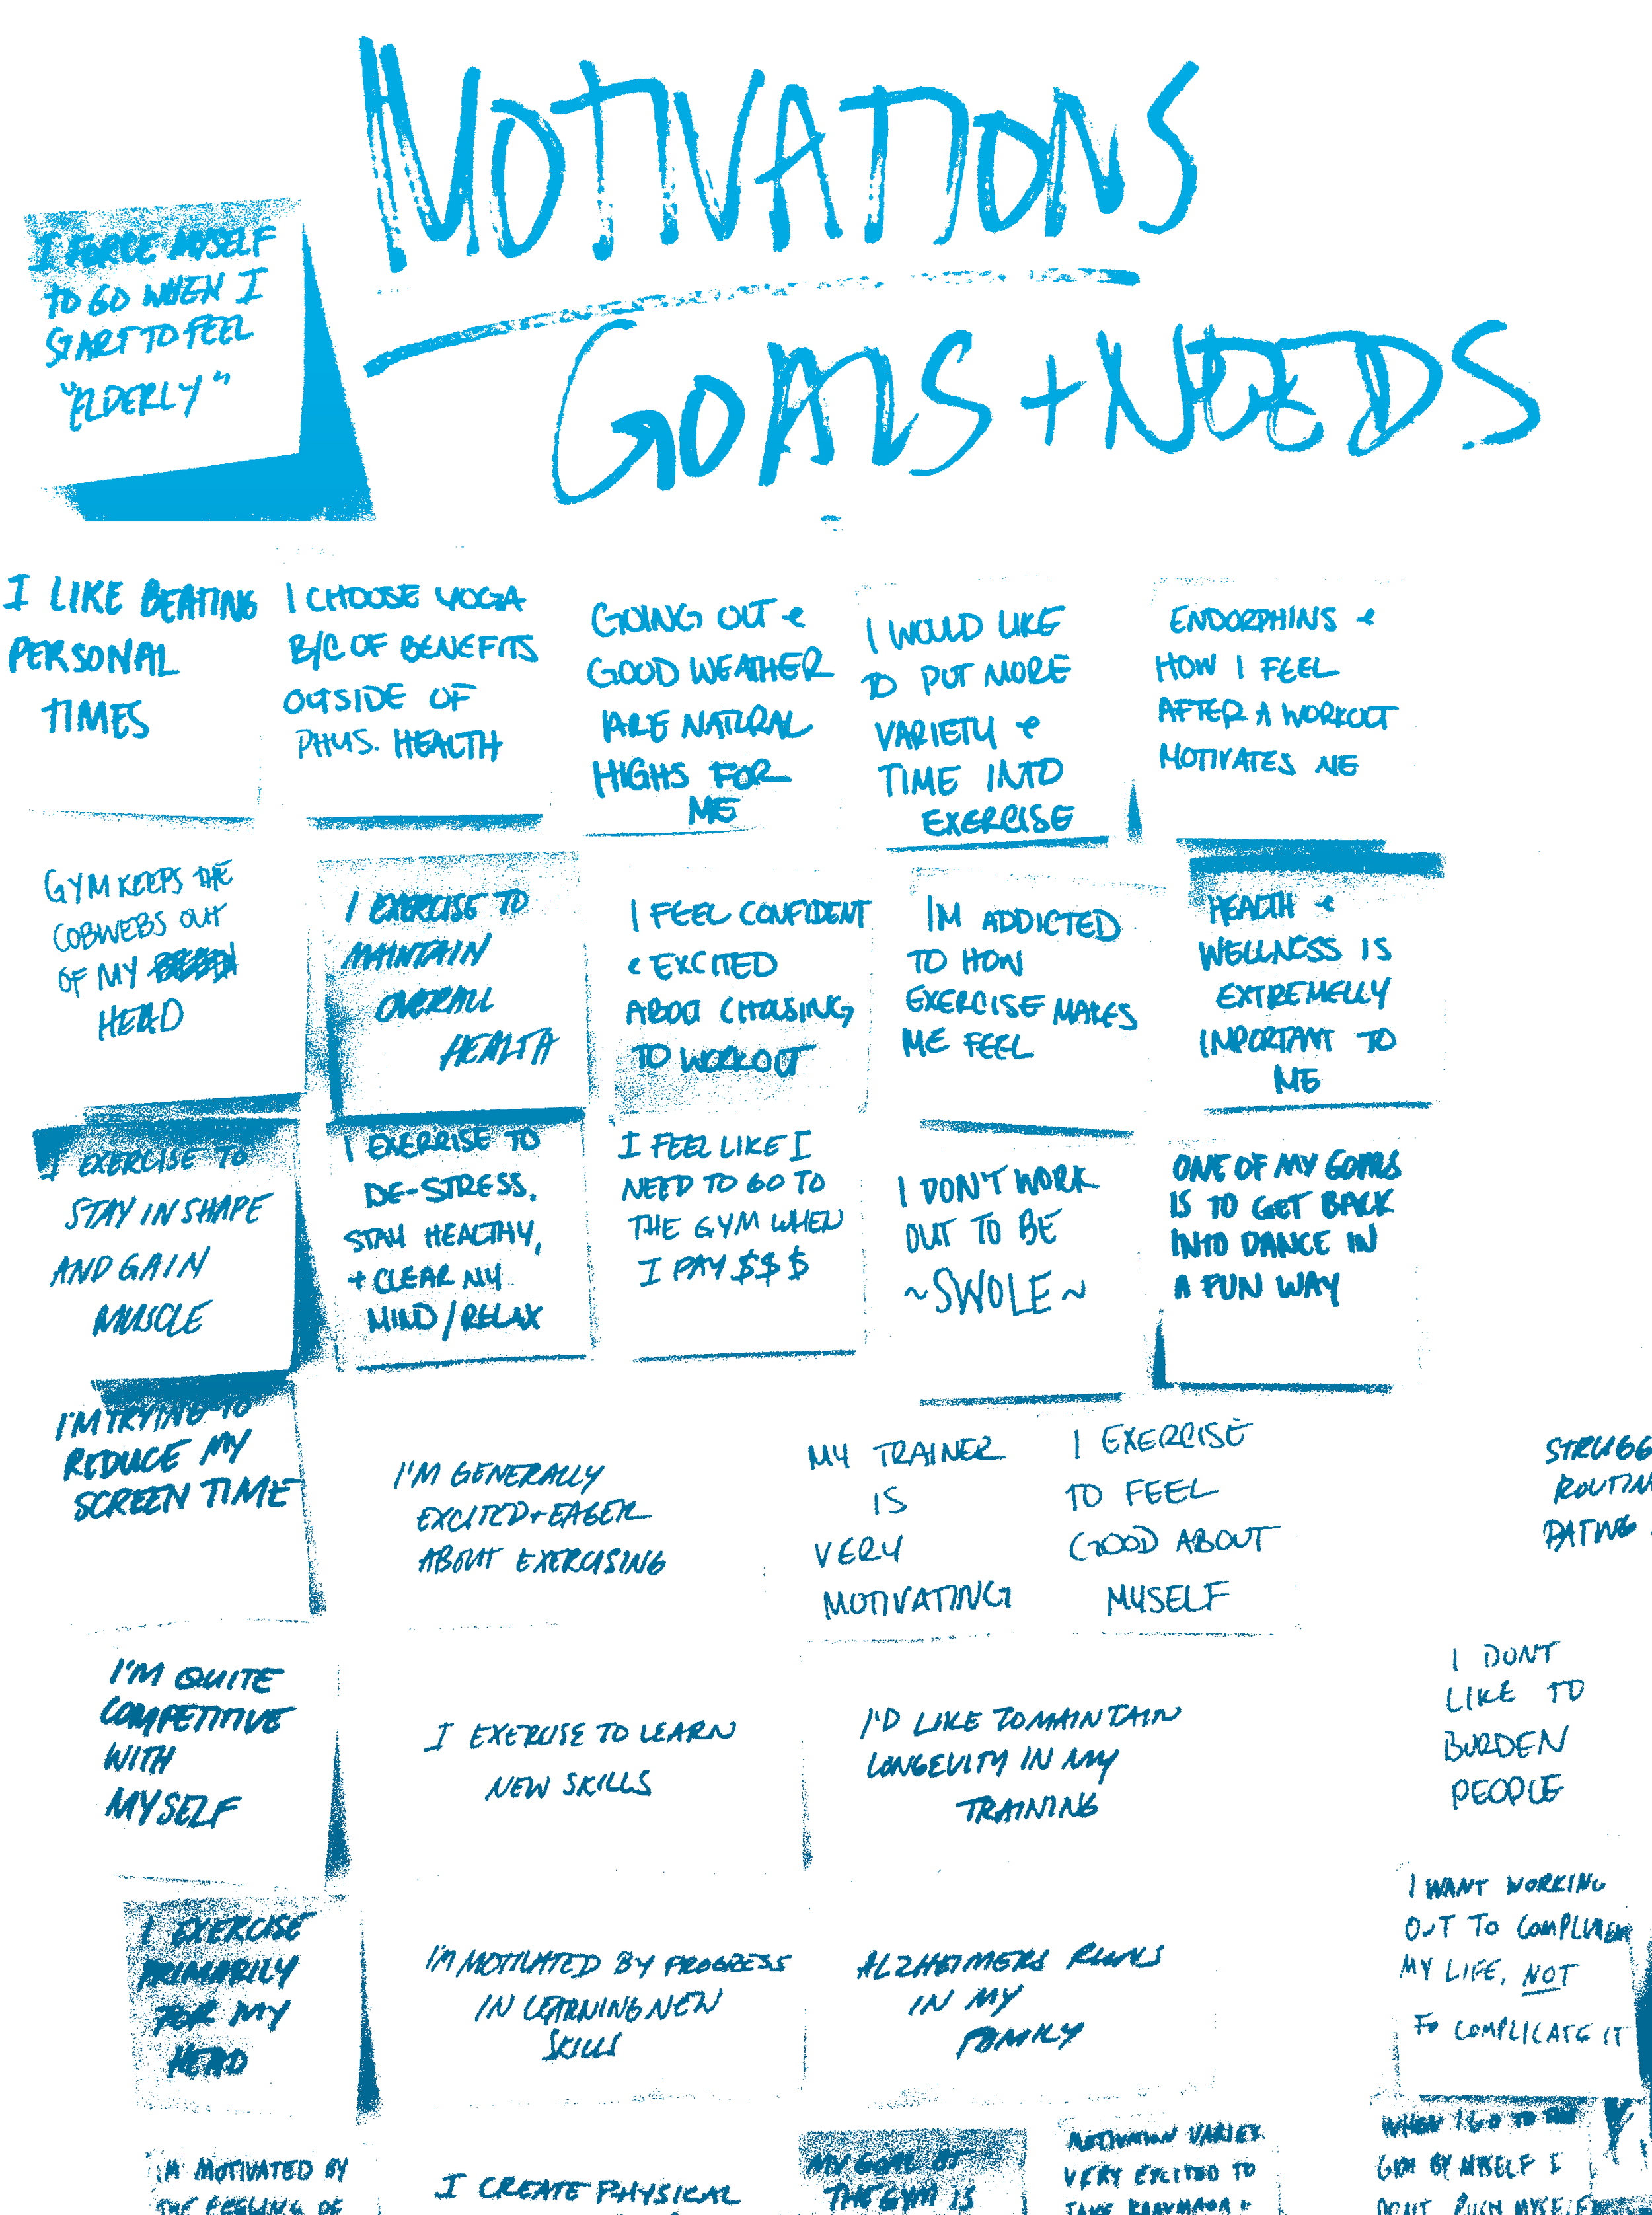 MOTIVATIONS
GOALS + NEEDS
I FORCE MYSELF
TO GO WHEN I
START TO FEEL
"ELDERLY"
I LIKE BEATING
PERSONAL
TIMES
I CHOOSE YOGA
B/C OF BENEFITS
OUTSIDE OF
PHYS. HEALTH
GOING OUT &
GOOD WEATHER
ARE NATURAL
HIGHS FOR
ME
I WOULD LIKE
TO PUT MORE
VARIETY &
TIME INTO
EXERCISE
ENDORPHINS &
HOW I FEEL
AFTER A WORKOUT
MOTIVATES ME
GYM KEEPS THE
COBWEBS OUT
OF MY
HEAD
I EXERCISE TO
MAINTAIN
OVERALL
HEALTH
I FEEL CONFIDENT
& EXCITED
ABOUT CHOOSING
TO WORKOUT
IM ADDICTED
TO HOW
EXERCISE MAKES
ME FEEL
HEALTH &
WELLNESS IS
EXTREMELLY
IMPORTANT TO
ME
I EXERCISE TO
STAY IN SHAPE
AND GAIN
MUSCLE
I EXERCISE TO
DE-STRESS,
STAY HEALTHY,
+ CLEAR MY
MIND/RELAX
I FEEL LIKE I
NEED TO GO TO
THE GYM WHEN
I PAY $$$
I DON'T WORK
OUT TO BE
~SWOLE~
ONE OF MY GOALS
IS TO GET BACK
INTO DANCE IN
A FUN WAY
I'M TRYING TO
REDUCE MY
SCREEN TIME
I'M GENERALLY
EXCITED + EAGER
ABOUT EXERCISING
MY TRAINER
IS
VERY
MOTIVATING
I EXERCISE
TO FEEL
GOOD ABOUT
MYSELF
STRUGG
ROUTIN
I'M QUITE
COMPETITIVE
WITH
MYSELF
I EXERCISE TO LEARN
NEW SKILLS
I'D LIKE TO MAINTAIN
LONGEVITY IN MY
TRAINING
I DONT
LIKE TO
BURDEN
PEOPLE
I EXERCISE
PRIMARILY
FOR MY
HEAD
I'M MOTIVATED BY PROGRESS
IN LEARNING NEW
SKILLS
ALZHEIMERS RUNS
IN MY
FAMILY
I WANT WORKING
OUT TO COMPLIMEN
MY LIFE, NOT
TO COMPLICATE IT
I'M MOTIVATED BY
THE FEELING OF
I CREATE PHYSICAL
MY GOAL AT
THE GYM IS
MOTIVATION VARIES
VERY EXCITED TO
TAKE KRAV MAGA +
WHEN I GO TO THE
GYM BY MYSELF I
DONT PUSH MYSELF